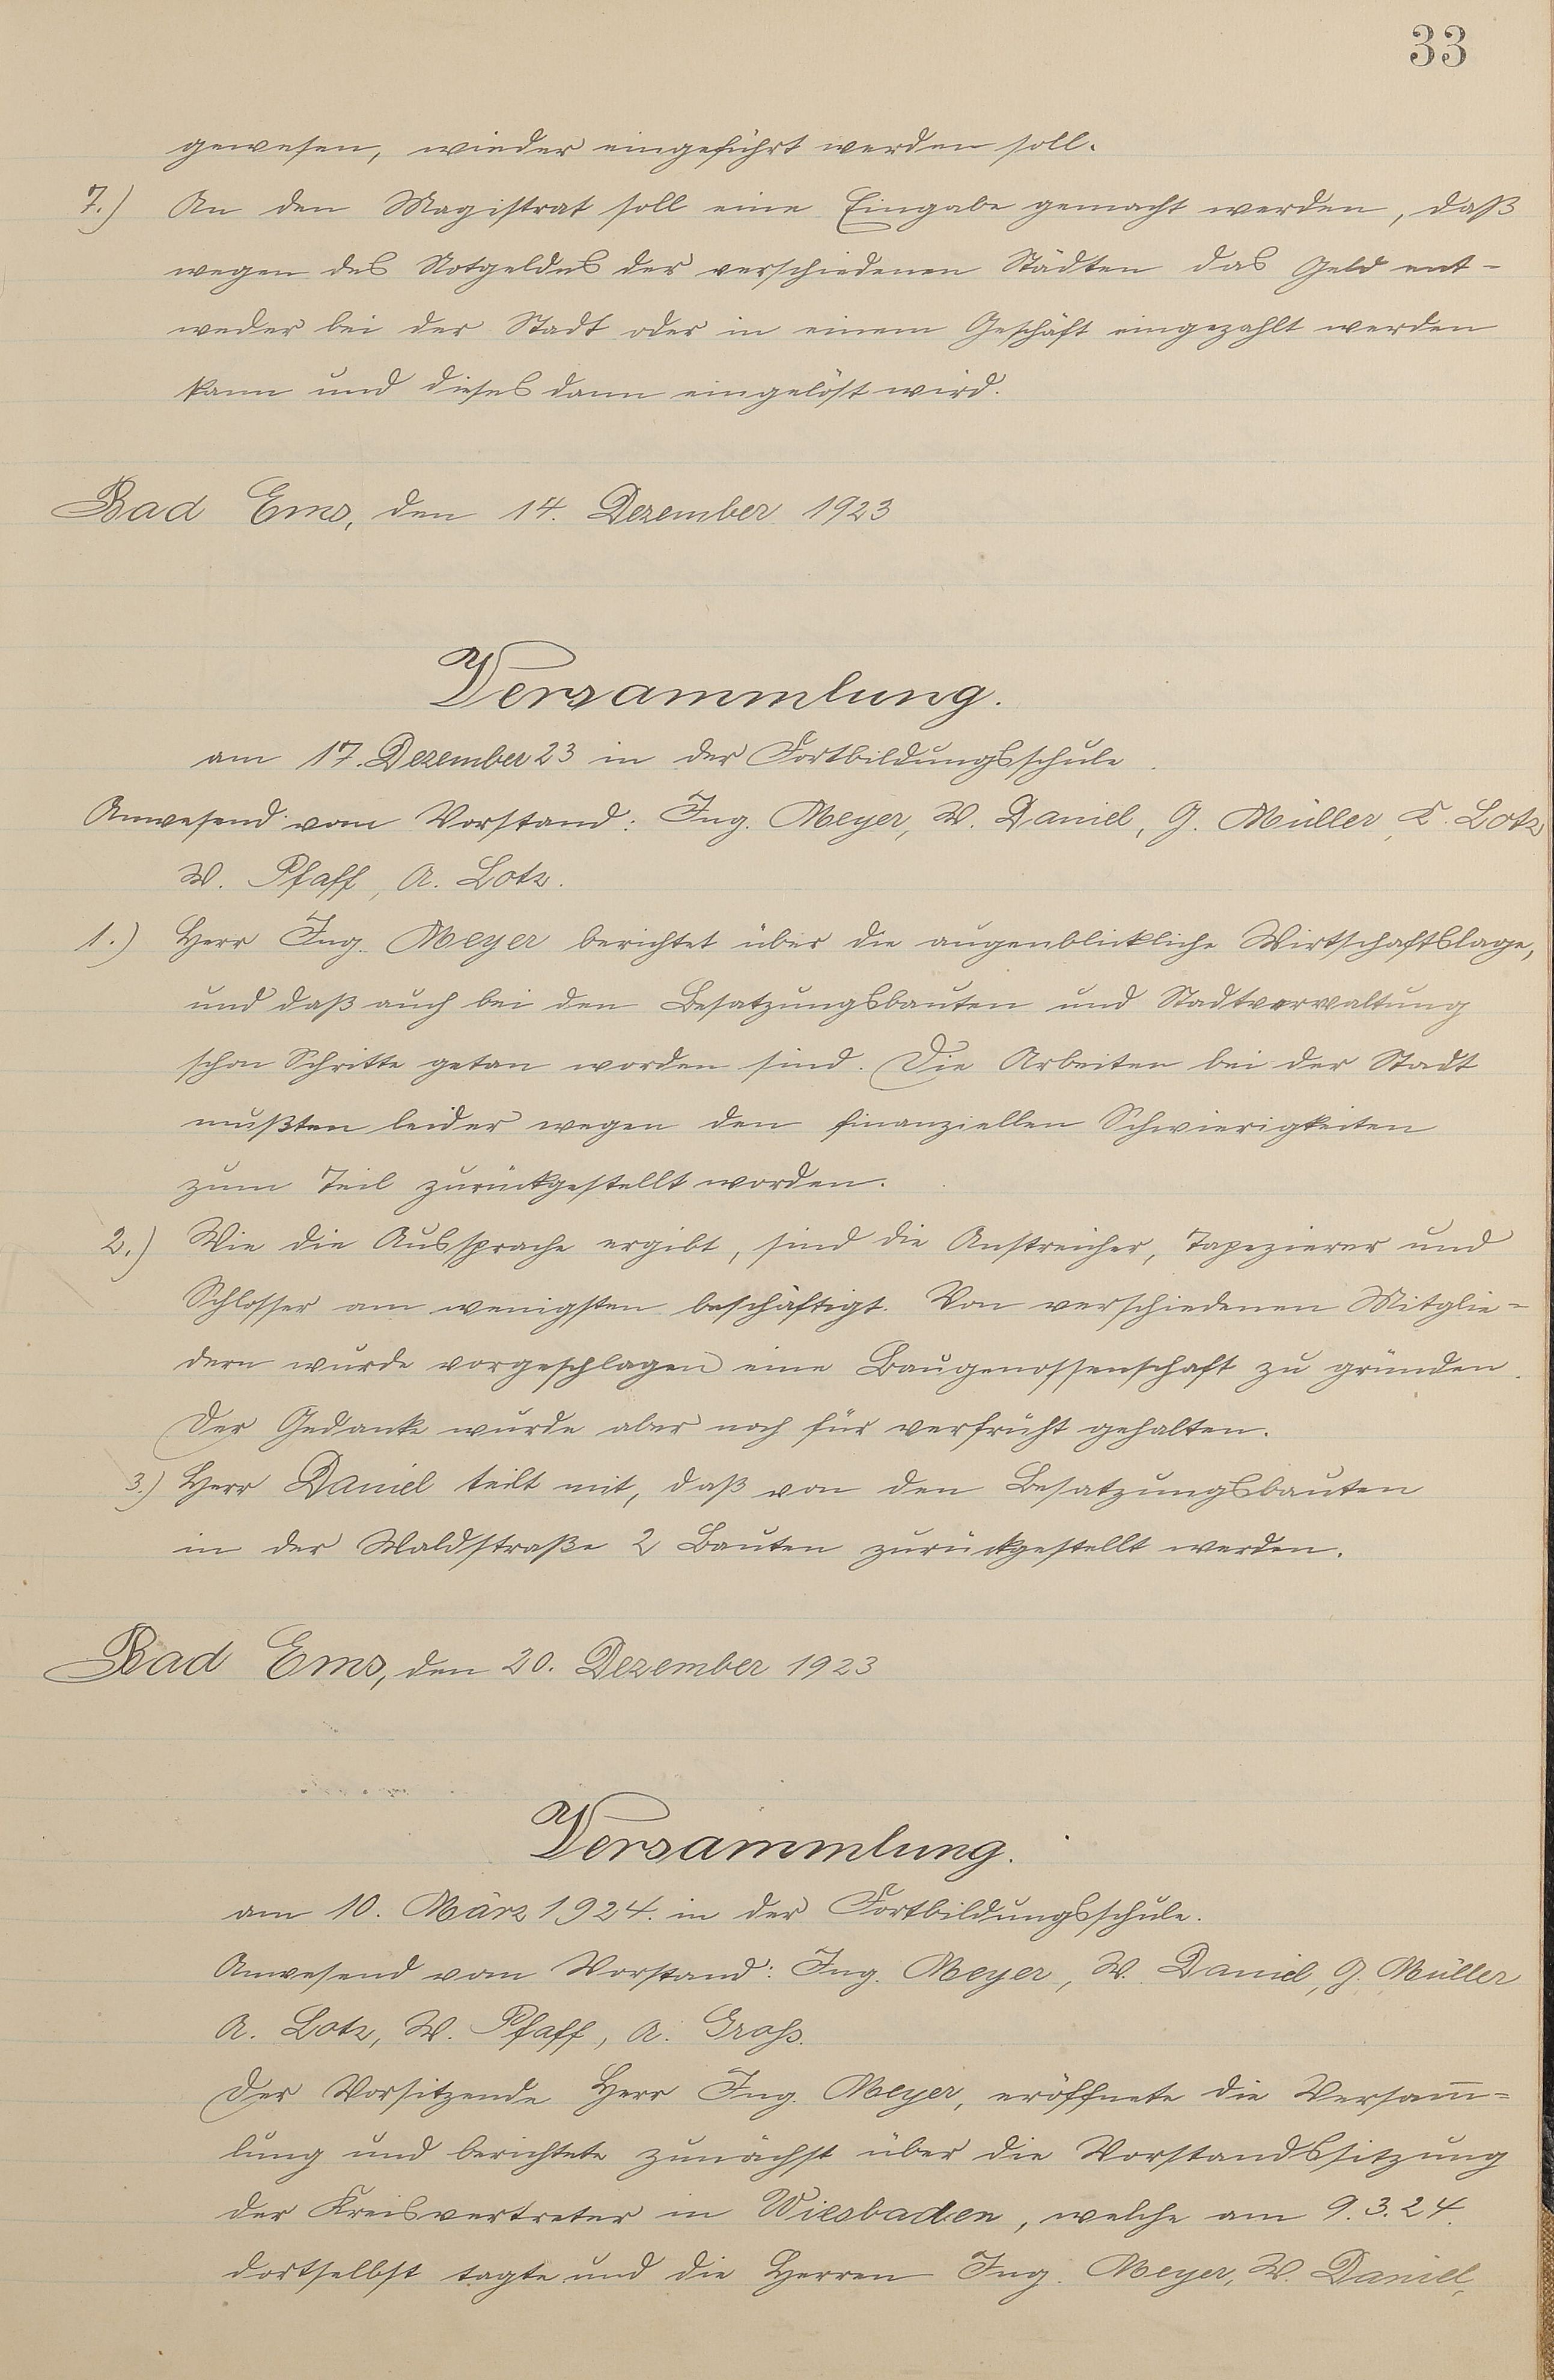 33
gewesen, wieder eingeführt werden soll.
7.) An den Magistrat soll eine Eingabe gemacht werden, daß
wegen des Notgeldes der verschiedenen Städten das Geld ent-
weder bei der Stadt oder in einem Geschäft eingezahlt werden
kann und dieses dann eingelöst wird.
Bad Ems, den 14. Dezember 1923
Versammlung.
am 17. Dezember 23 in der Fortbildungsschule.
Anwesend vom Vorstand: Ing. Meyer, W. Daniel, G. Müller, K. Lotz
W. Pfaff, A. Lotz.
1.) Herr Ing. Meyer berichtet über die augenblickliche Wirtschaftslage,
und daß auch bei den Besatzungsbauten und Stadtverwaltung
schon Schritte getan worden sind. Die Arbeiten bei der Stadt
mußten leider wegen den finanziellen Schwierigkeiten
zum Teil zurückgestellt worden.
2.) Wie die Aussprache ergibt, sind die Anstreicher, Tapezierer und
Schlosser am wenigsten beschäftigt. Von verschiedenen Mitglie=
dern wurde vorgeschlagen eine Baugenossenschaft zu gründen.
Der Gedanke wurde aber noch für verfrüht gehalten.
3.) Herr Daniel teilt mit, daß von den Besatzungsbauten
in der Waldstraße 2 Bauten zurückgestellt werden.
Bad Ems, den 20. Dezember 1923
Versammlung.
am 10. März 1924. in der Fortbildungsschule.
Anwesend vom Vorstand: Ing. Meyer, W. Daniel, G. Müller
A. Lotz, W. Pfaff, A. Groß.
Der Vorsitzende Herr Ing. Meyer, eröffnete die Versam̅=
lung und berichtete zunächst über die Vorstandssitzung
der Kreisvertreter in Wiesbaden, welche am 9.3.24.
dortselbst tagte und die Herren Ing. Meyer, W. Daniel,